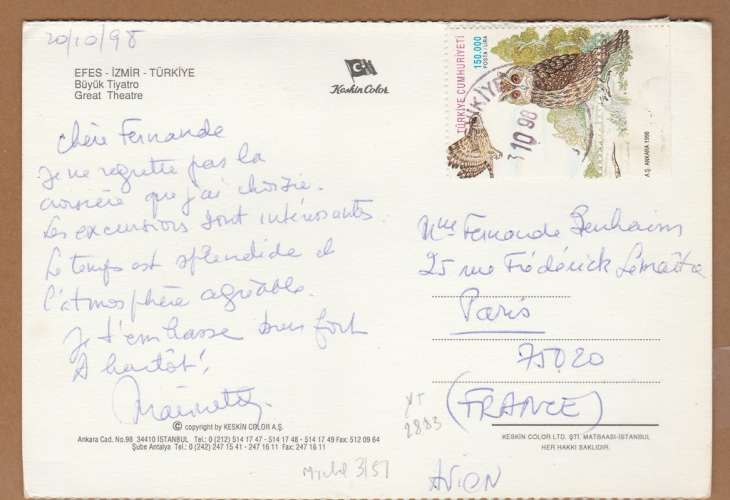 20/10/98
EFES - İZMİR - TÜRKİYE
Büyük Tiyatro
Great Theatre
Keskin Color
TÜRKİYE CUMHURİYETİ
150.000
POSTA / LİRA
A.Ş. ANKARA 1998
10 98
Chère Fernande
Je ne regrette pas la
croisière que j'ai choisie.
Les excursions sont intéressantes.
Le temps est splendide et
l'atmosphère agréable.
Je t'embrasse bien fort
A bientôt!
Mme Fernande Benhaim
25 rue Frédérick Lemaître
Paris
75020
(FRANCE)
YT
2883
AVION
© copyright by KESKİN COLOR A.Ş.
Ankara Cad. No.98 34410 İSTANBUL Tel.: 0 (212) 514 17 47 - 514 17 48 - 514 17 49 Fax: 512 09 64
Şube Antalya Tel.: 0 (242) 247 15 41 - 247 16 11 Fax: 247 16 11
KESKİN COLOR LTD. ŞTİ. MATBAASI-İSTANBUL
HER HAKKI SAKLIDIR.
3151